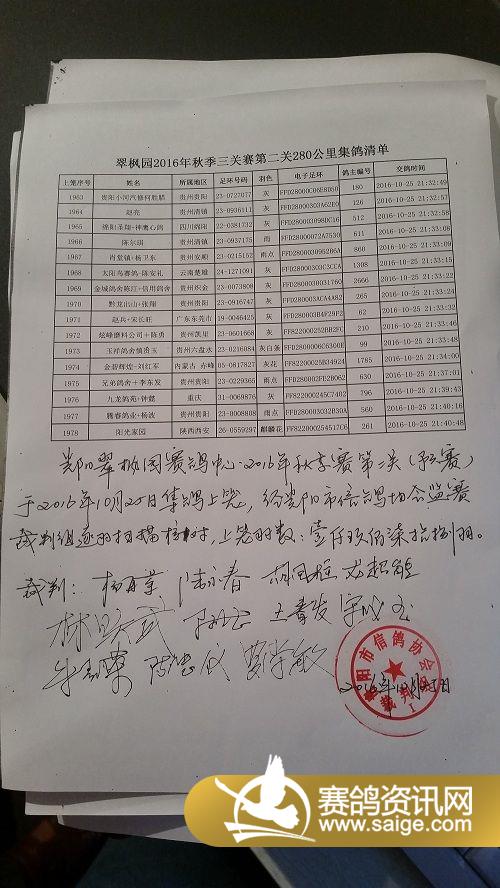 翠枫园2016年秋季三关赛第二关280公里集鸽清单
上笼序号 姓名 所属地区 足环号码 羽色 电子足环 鸽主编号 交鸽时间
1963 贵阳小河汽修何胜腊 贵州贵阳 23-0727077 灰 180 2016-10-25 21:32:49
1964 赵亮 贵州清镇 23-0936111 灰 126 2016-10-25 21:32:57
1965 绵阳圣翔-神鹰心鸽 四川绵阳 22-0381732 灰 512 2016-10-25 21:32:58
1966 陈尔琪 贵州清镇 23-0937175 雨 611 2016-10-25 21:33:08
1967 肖堂镇+杨卫东 贵州安顺 23-0215152 雨点 860 2016-10-25 21:33:14
1968 太阳鸟赛鸽-陈安礼 云南楚雄 24-1271091 灰 FFD28000303C3CCA 1308 2016-10-25 21:33:15
1969 金城鸽舍陈江+信用鸽舍 贵州织金 23-0073808 灰 2666 2016-10-25 21:33:22
1970 黔龙出山-张翔 贵州贵阳 23-0916747 灰 265 2016-10-25 21:33:24
1971 赵兵+宋长旺 广东东莞市 19-0046425 灰 210 2016-10-25 21:33:32
1972 炫峰磨料公司+陈勇 贵州凯里 23-0601668 灰 62 2016-10-25 21:33:46
1973 贵州六盘水 23-0216084 灰白条 99 2016-10-25 21:33:48
1974 金碧辉煌-刘红军 内蒙古 赤峰 05-0817827 灰花 FF82200025B34924 1785 2016-10-25 21:34:00
1975 兄弟鸽舍+李东发 贵州贵阳 23-0229365 雨点 630 2016-10-25 21:37:01
1976 九龙鸽苑+钟懿 重庆 31-0069876 灰 FF822000245C7402 796 2016-10-25 21:39:43
1977 腾春鸽业-杨波 贵州贵阳 23-0008808 雨点 FFD280003032B30A 560 2016-10-25 21:40:16
1978 阳光家园 陕西西安 26-0559297 麒麟花 FF822000254517C6 261 2016-10-25 21:40:48
贵阳翠枫园赛鸽中心·2016年秋季赛第二关(预赛)
于2016年10月25日集鸽上笼，经贵阳市信鸽协会监赛
裁判组逐羽扫描核对，上笼羽数：壹仟玖佰柒拾捌羽。
裁判：
贵阳市信鸽协会
裁判
2016年10月25日
赛鸽资讯网
www.saige.com